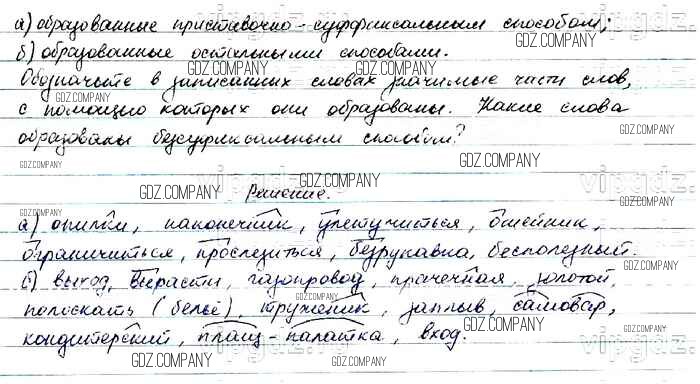 а) образованные приставочно-суффиксальным способом;
б) образованные остальными способами.
Обозначьте в записанных словах значимые части слов,
с помощью которых они образованы. Какие слова
образованы безсуффиксальным способом?
Решение.
а) опилки, наконечник, улетучиться, ошейник,
ограничиться, прослезиться, безрукавка, бесполезный.
б) выход, вырасти, газопровод, прачечная, золотой,
полоскать (бельё), труженик, заплыв, самовар,
кондитерский, плащ-палатка, вход.
GDZ.COMPANY
vipgdz.